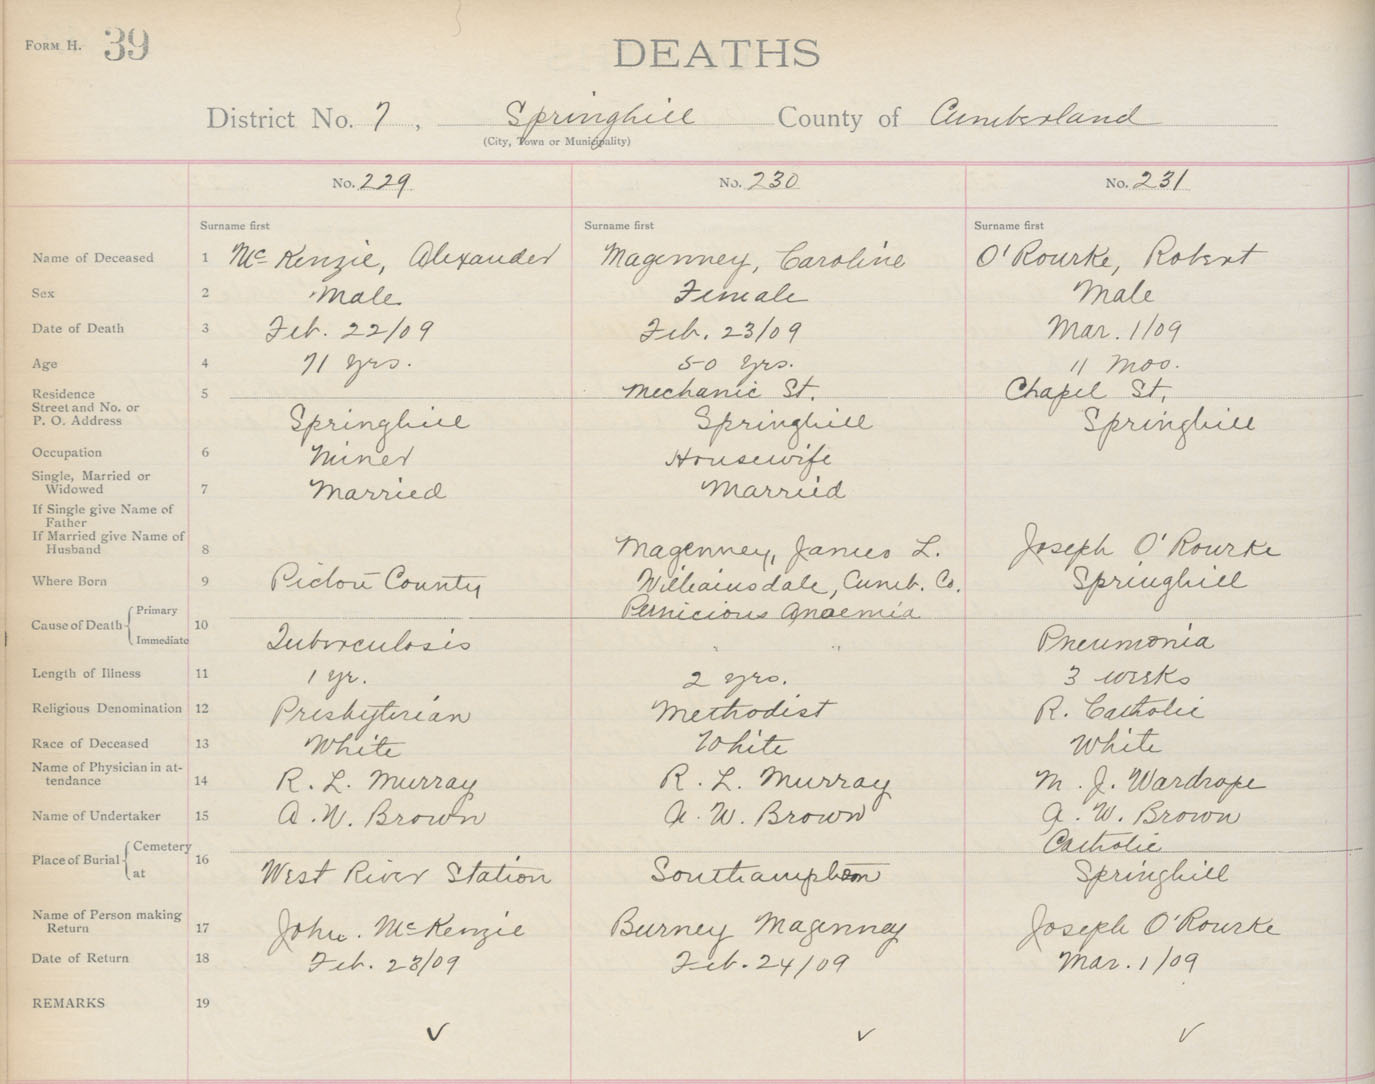 FORM H. 39
DEATHS
District No. 7, Springhill County of Cumberland
(City, Town or Municipality)
No. 229 No. 230 No. 231
Surname first Surname first Surname first
Name of Deceased 1 McKenzie, Alexander Magenney, Caroline O'Rourke, Robert
Sex 2 Male Female Male
Date of Death 3 Feb. 22/09 Feb. 23/09 Mar. 1/09
Age 4 71 yrs. 50 yrs. 11 mos.
Residence 5 Mechanic St. Chapel St.
Street and No. or
P. O. Address Springhill Springhill Springhill
Occupation 6 Miner Housewife
Single, Married or
Widowed 7 Married Married
If Single give Name of
Father
If Married give Name of
Husband 8 Magenney, James L. Joseph O'Rourke
Where Born 9 Pictou County Williamsdale, Cumb. Co. Springhill
Primary Pernicious Anaemia
Cause of Death 10
Immediate Tuberculosis " " Pneumonia
Length of Illness 11 1 yr. 2 yrs. 3 weeks
Religious Denomination 12 Presbyterian Methodist R. Catholic
Race of Deceased 13 White White White
Name of Physician in at-
tendance 14 R. L. Murray R. L. Murray M. J. Wardrope
Name of Undertaker 15 A. W. Brown A. W. Brown A. W. Brown
Cemetery Catholic
Place of Burial 16
at West River Station Southampton Springhill
Name of Person making
Return 17 John. McKenzie Burney Magenney Joseph O'Rourke
Date of Return 18 Feb. 23/09 Feb. 24/09 Mar. 1/09
REMARKS 19